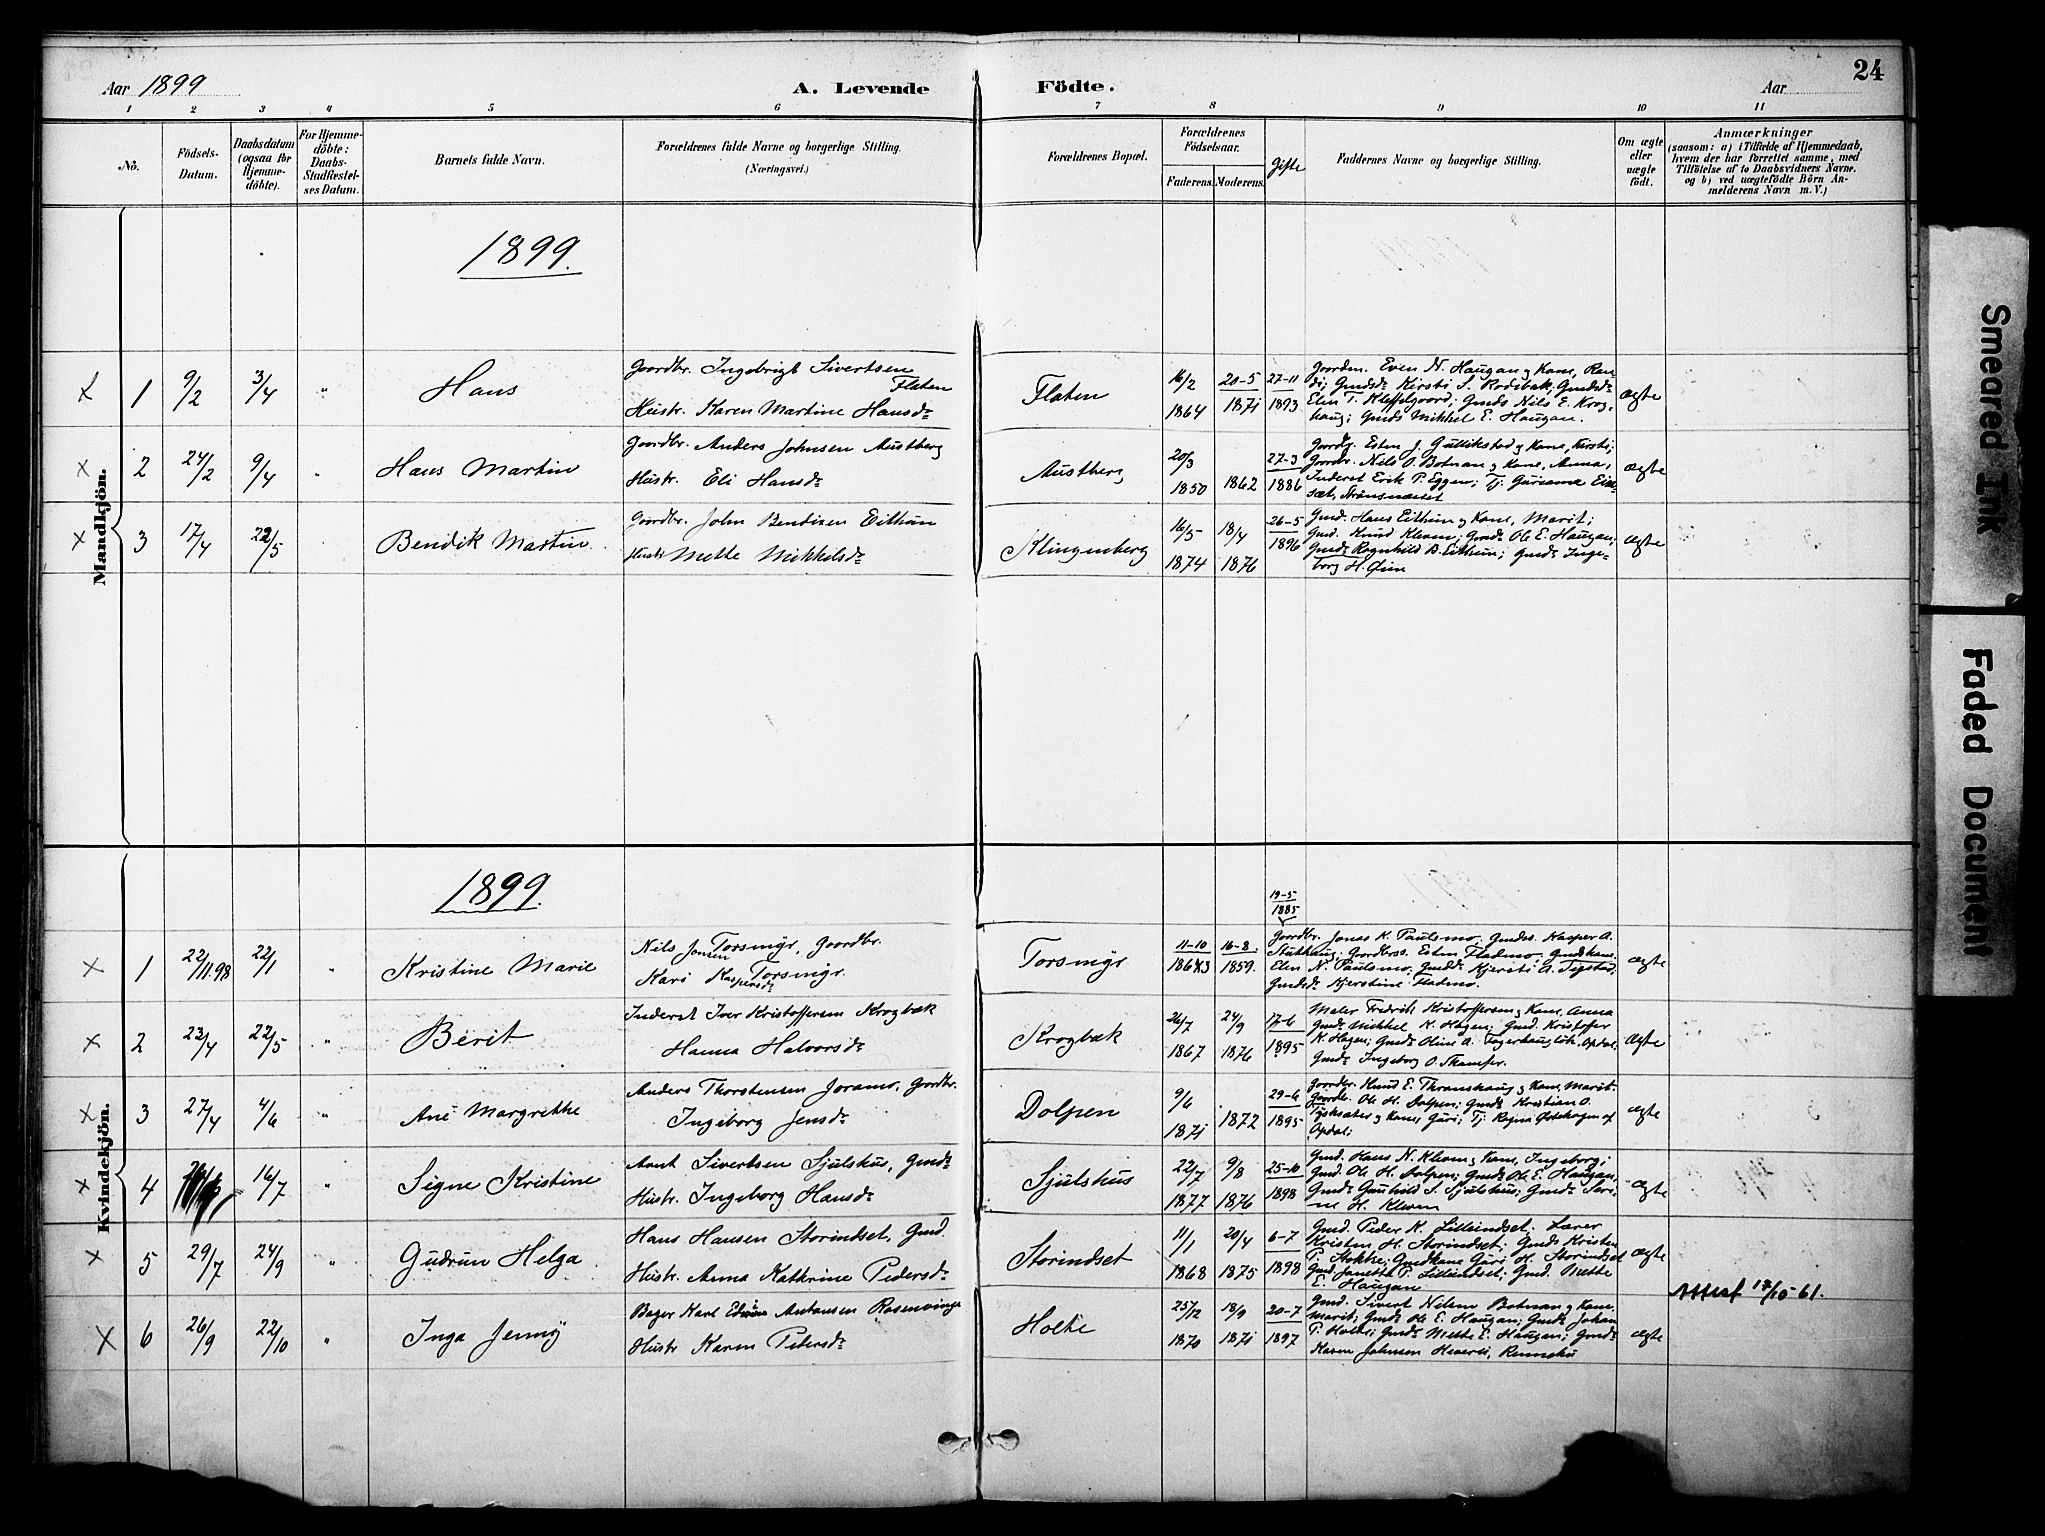 24
Aar 1899
A. Levende Födte.
Aar
1 2 3 4 5 6 7 8 9 10 11
No.
Födsels-Datum.
Daabsdatum (ogsaa for Hjemme-döbte).
For Hjemme-döbte: Daabs-Stadfæstel-ses Datum.
Barnets fulde Navn.
Forældrenes fulde Navne og borgerlige Stilling.
(Næringsvei.)
Forældrenes Bopæl.
Forældrenes Födselsaar.
Faderens. Moderens.
Gifte
Faddernes Navne og borgerlige Stilling.
Om ægte eller uægte födt.
Anmærkninger
(saasom: a) i Tilfælde af Hjemmedaab,
hvem der har forrettet samme, med
Tilföielse af to Daabsvidners Navne.
og b) ved uægtefödte Börn An-
melderens Navn m. V.)
Mandkjön.
1899.
1 9/2 3/4 " Hans
Gaardbr. Ingebrigt Sivertsen
Flaten
Hustr. Karen Martine Hansdr
Flaten
16/2 1864
20-5 1871
27-11 1893
Gaardm. Even N. Haugan og Kone, Ran-
di; Gmdsdr Kirsti S. Rodibak, Gmdsdr
Elen T. Kleffelgaard; Gmds Nils E. Krog-
haug; Gmds Mikkel E. Haugan.
ægte
2 24/2 9/4 " Hans Martin
Gaardbr. Anders Johnsen Austberg
Hustr. Eli Hansdr
Austberg
20/3 1850
1862
27-3 1886
Gaardbr. Esten J. Gullikstad og Kone, Kirsti;
Gaardbr. Nils O. Botnan og Kone, Anna;
Inderst Erik P. Eggen; Tj. Gurianna Ein-
sæt, Strömsmoeset
ægte
3 17/4 22/5 Bendik Martin
Gaardbr. John Bendixen Eithun
Hustr Mette Mikkelsdr
Klingenberg
16/5 1874
18/4 1876
26-5 1896
Gmd. Hans Eithun og Kone, Marit;
Gmd. Knud Kleven; Gmds Ole E. Haugan;
Gmdsdr Ragnhild B. Eithun; Gmdsdr Inge-
borg H. Öien
ægte
Kvindekjön.
1899.
1 22/11 98 22/1 " Kristine Marie
Nils Jonsen Torsmyr, Gaardbr.
Kari Kaspersdr Torsmyr.
Torsmyr
11-10 1863
16-8 1859.
19-5 1885
Gaardbr. Jonas K. Paulsmo, Gmdss. Kasper A.
Stutthaug; Gaardbrs. Esten Fladmo, Gmdskone
Elen N. Paulsmo, Gmdsdr Kjersti A. Tigstad,
Gmdsdr Kjerstine Fladmo.
ægte
2 23/4 22/5 " Berit
Inderst Iver Kristoffersen Krogbæk
Hanna Halvorsdr
Krogbæk
26/7 1867
24/9 1876
17-6 1895
Maler Fredrik Kristoffersen og Kone, Anna
Gmds Mikkel K. Hagen; Gmd. Kristoffer
K. Hagen; Gmdsdr Oline A. Fagerhaugløk, Opdal;
Gmdsdr Ingeborg O. Skamfer.
ægte
3 27/4 4/6 " Ane Margrethe
Anders Thorstensen Joramo, Gaardbr.
Ingeborg Jensdr
Dolpen
9/6 1871
1872
29-6 1895
Gaardbr. Knud E. Thronshaug og Kone, Marit.
Gaardbr. Ole H. Dolpen; Gmds Kristian O.
Gisksæter og Kone, Guri; Tj. Ragna Östskogen af
Opdal;
ægte
4 16/7 " Signe Kristine
Arnt Sivertsen Sjulshus, Gmds
Hustr. Ingeborg Hansdr
Sjulshus
22/7 1877
9/8 1876
25-10 1898
Gmd. Hans N. Kleven og Kone, Ingeborg;
Gmd. Ole H. Dolpen; Gmds Ole E. Haugan,
Gmdsdr Gunhild S. Sjulshus; Gmdsdr Sere-
ne H. Kleven
ægte
5 29/7 24/9 " Gudrun Helga
Hans Hansen Storindset, Gmd.
Hustr. Anna Kathrine Pedersdr
Storindset
11/1 1868
20/4 1875
6-7 1898
Gmd. Peder K. Lillindset. Lærer
Kristen H. Storindset; Gmds Kristen
P. Stokke; Gmdkone Guri H. Storindset
Gmd. Janetta P. Lillindset; Gmd. Mette
E. Haugan
ægte
6 26/9 22/10 " Inga Jenny
Bager Karl Edvin Antonsen Rosenvinge
Hustr Karen Petersdr
Holte
25/12 1870
18/9 1871
20-7 1897
Gmd. Sivert Nilsen Botnan og Kone
Marit; Gmds Ole E. Haugan; Gmds Johan
P. Holte; Gmdsdr Mette E. Haugan; Gmdsdr
Karen Johnsen Heverli, Rennebu
ægte
Attest 13/10-61.
Smeared Ink
Faded Document